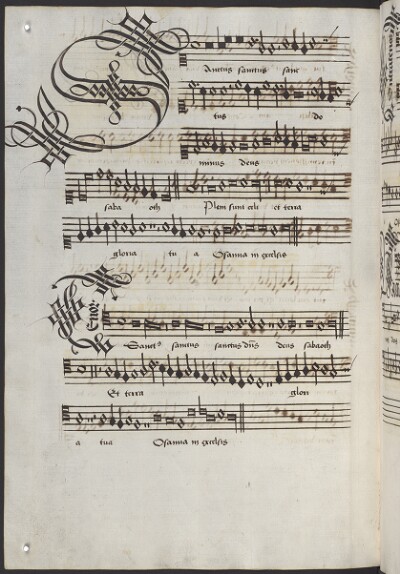 Sanctus sanctus sanc
tus do
minus deus
saba oth Pleni sunt celi et terra
gloria tu a Osanna in excelsis
Tenor
Sanctus sanctus sanctus dns deus sabaoth
Et terra glori
a tua Osanna in excelsis